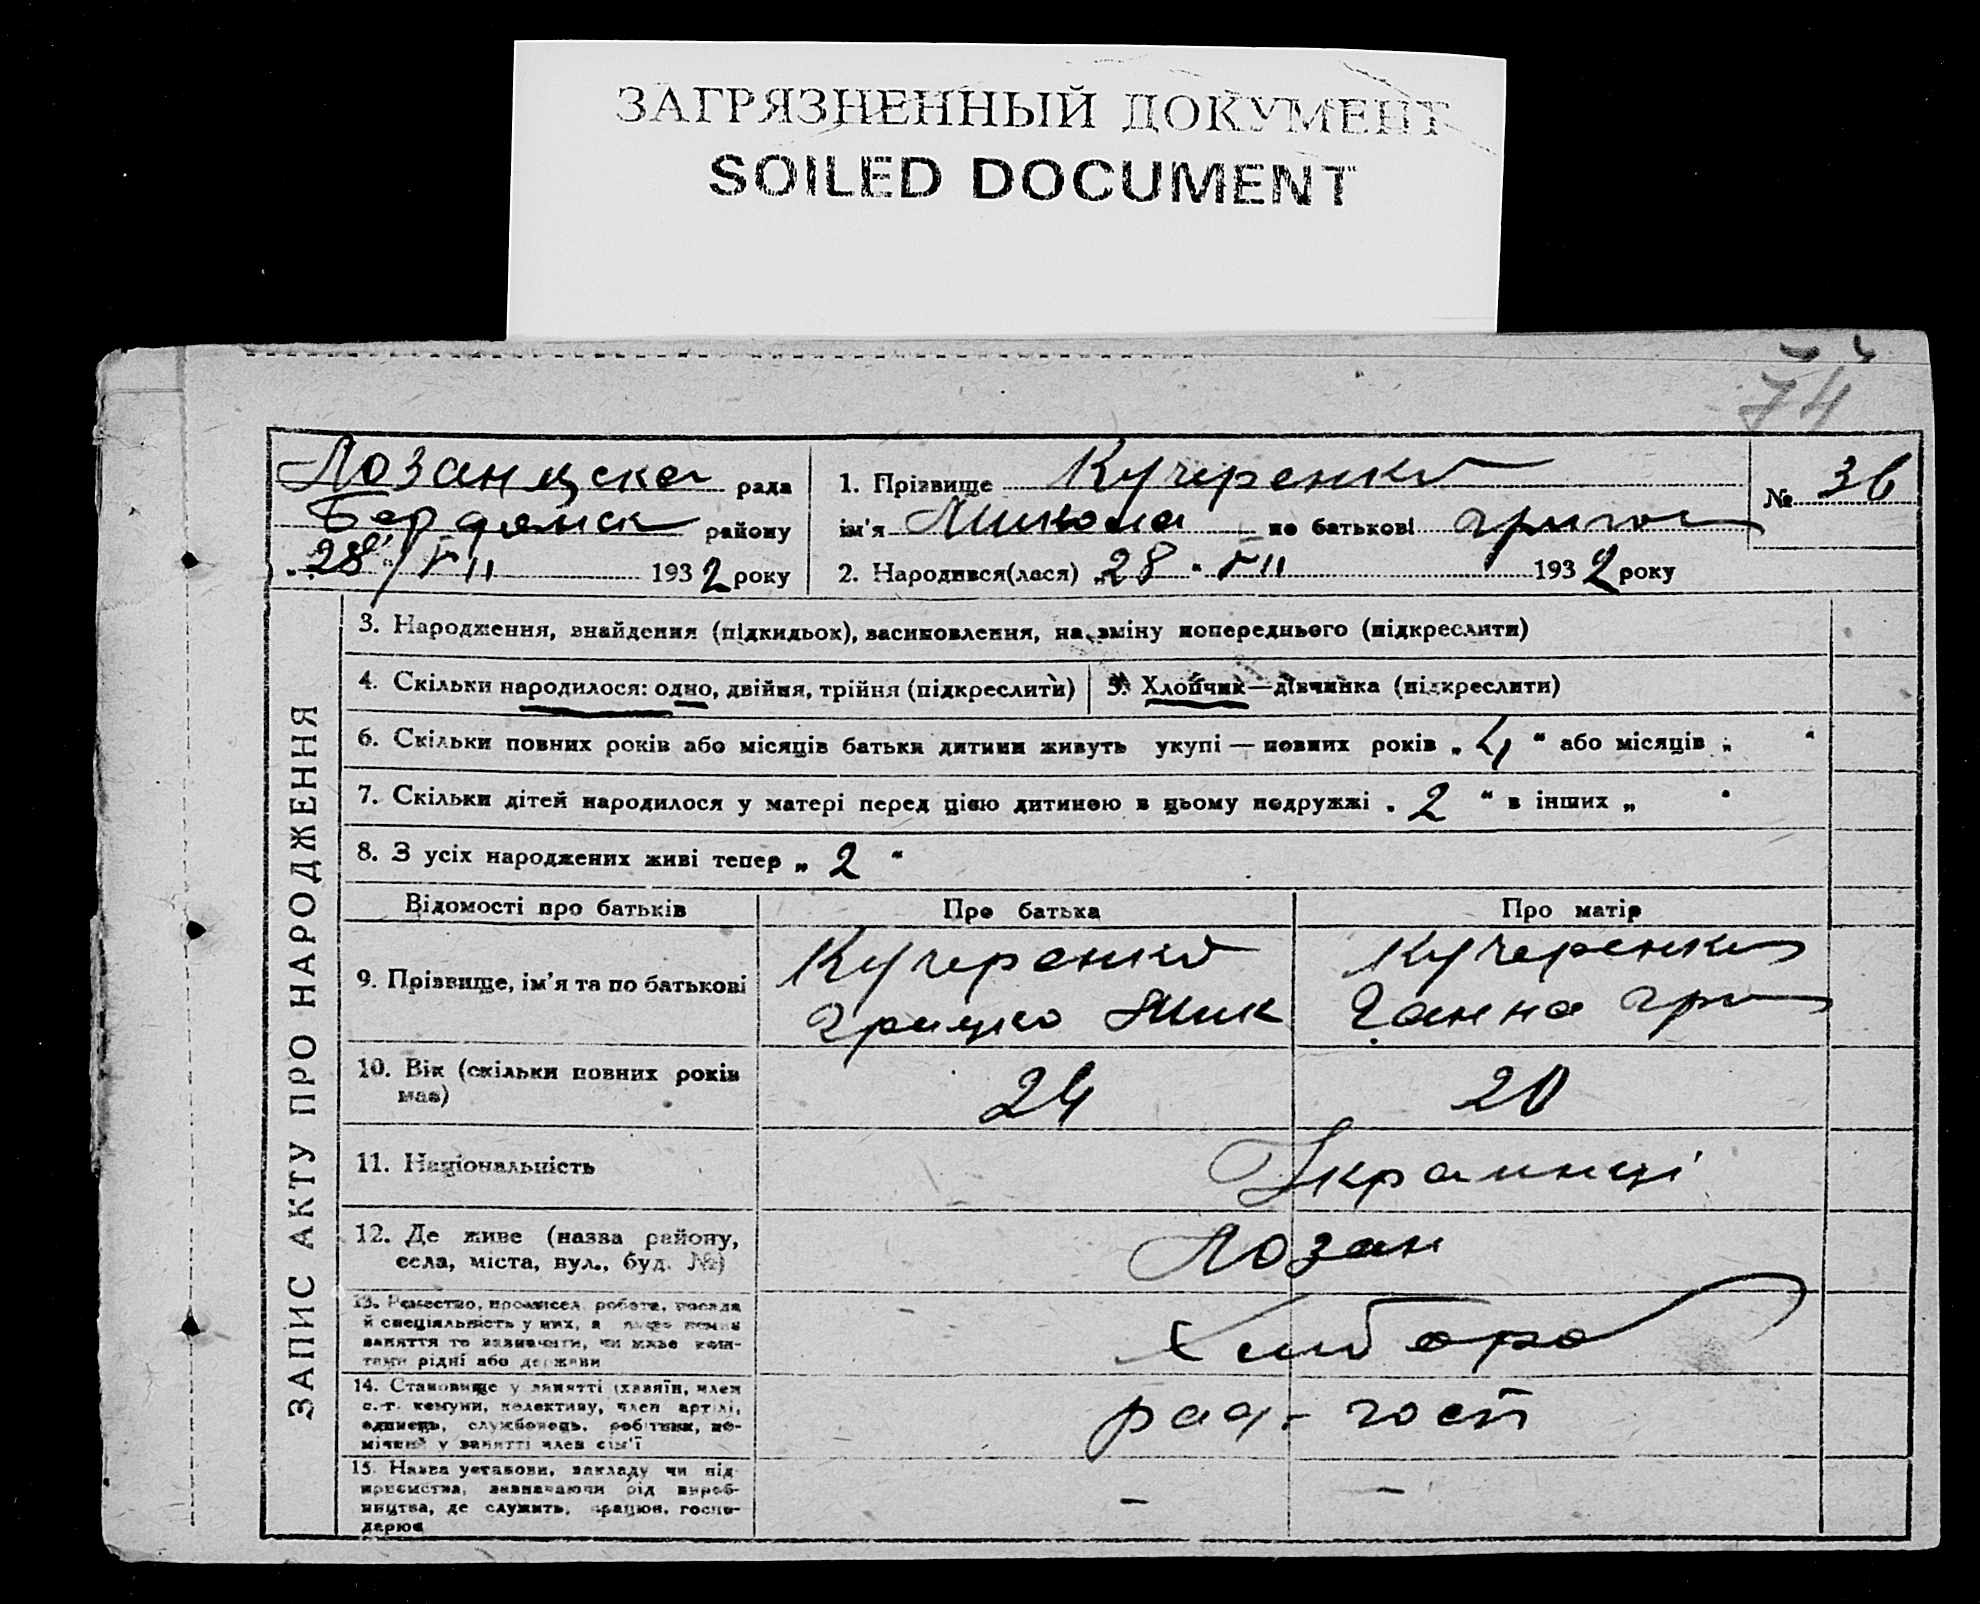 ЗАГРЯЗНЕННЫЙ ДОКУМЕНТ
SOILED DOCUMENT
74
Лозануска рада
Бердянск району
28/VII 1932 року
1. Прізвище Кучеренко
ім'я Микола по батькові Григор
№ 36
2. Народився(лася) „28“ VII 1932 року
ЗАПИС АКТУ ПРО НАРОДЖЕННЯ
3. Народження, знайдення (підкидьок), засиновлення, на зміну попереднього (підкреслити)
4. Скільки народилося: одно, двійня, трійня (підкреслити)
5. Хлопчик—дівчинка (підкреслити)
6. Скільки повних років або місяців батьки дитини живуть укупі — повних років „4“ або місяців „ “
7. Скільки дітей народилося у матері перед цією дитиною в цьому подружжі „2“ в інших „ “
8. З усіх народжених живі тепер „2“
Відомості про батьків
Про батька
Про матір
9. Прізвище, ім'я та по батькові
Кучеренко
Грицко Мик
Кучеренко
Ганна Гр
10. Вік (скільки повних років
має)
24
20
11. Національність
Украинці
12. Де живе (назва району,
села, міста, вул., буд. №)
Лозан
13. Ремество, промисел, робота, посада
й спеціяльність у них, а якщо немає
заняття то зазначити, чи живе кош-
тами рідні або держави
Хлібороб
14. Становище у занятті (хазяїн, член
с.-г. комуни, колективу, член артілі,
одинець, службовець, робітник, по-
мічний у занятті член сім'ї
рад-гост
15. Назва установи, закладу чи під-
приємства, зазначаючи рід вироб-
ництва, де служить, працює, госпо-
дарює
- -